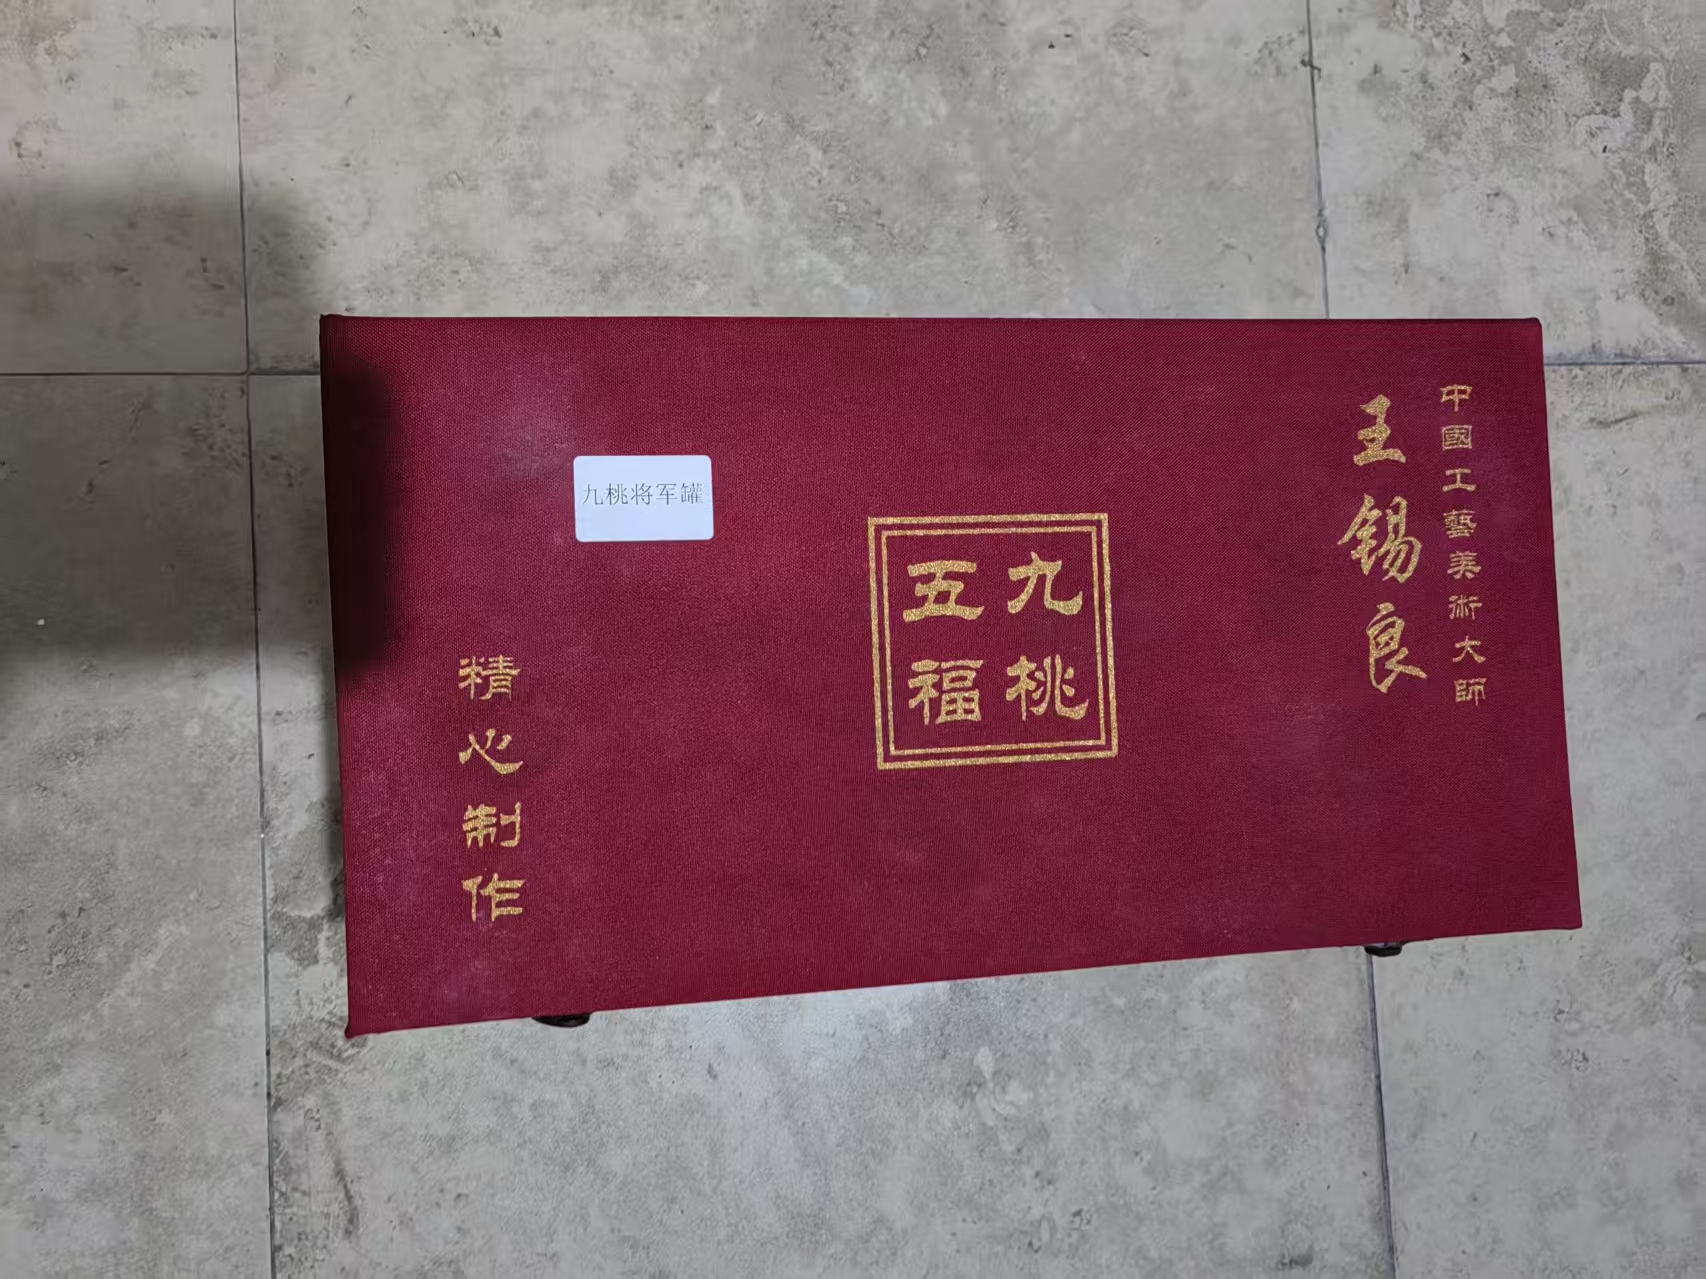 中國工藝美術大師
王錫良
九桃
五福
九桃将军罐
精心制作